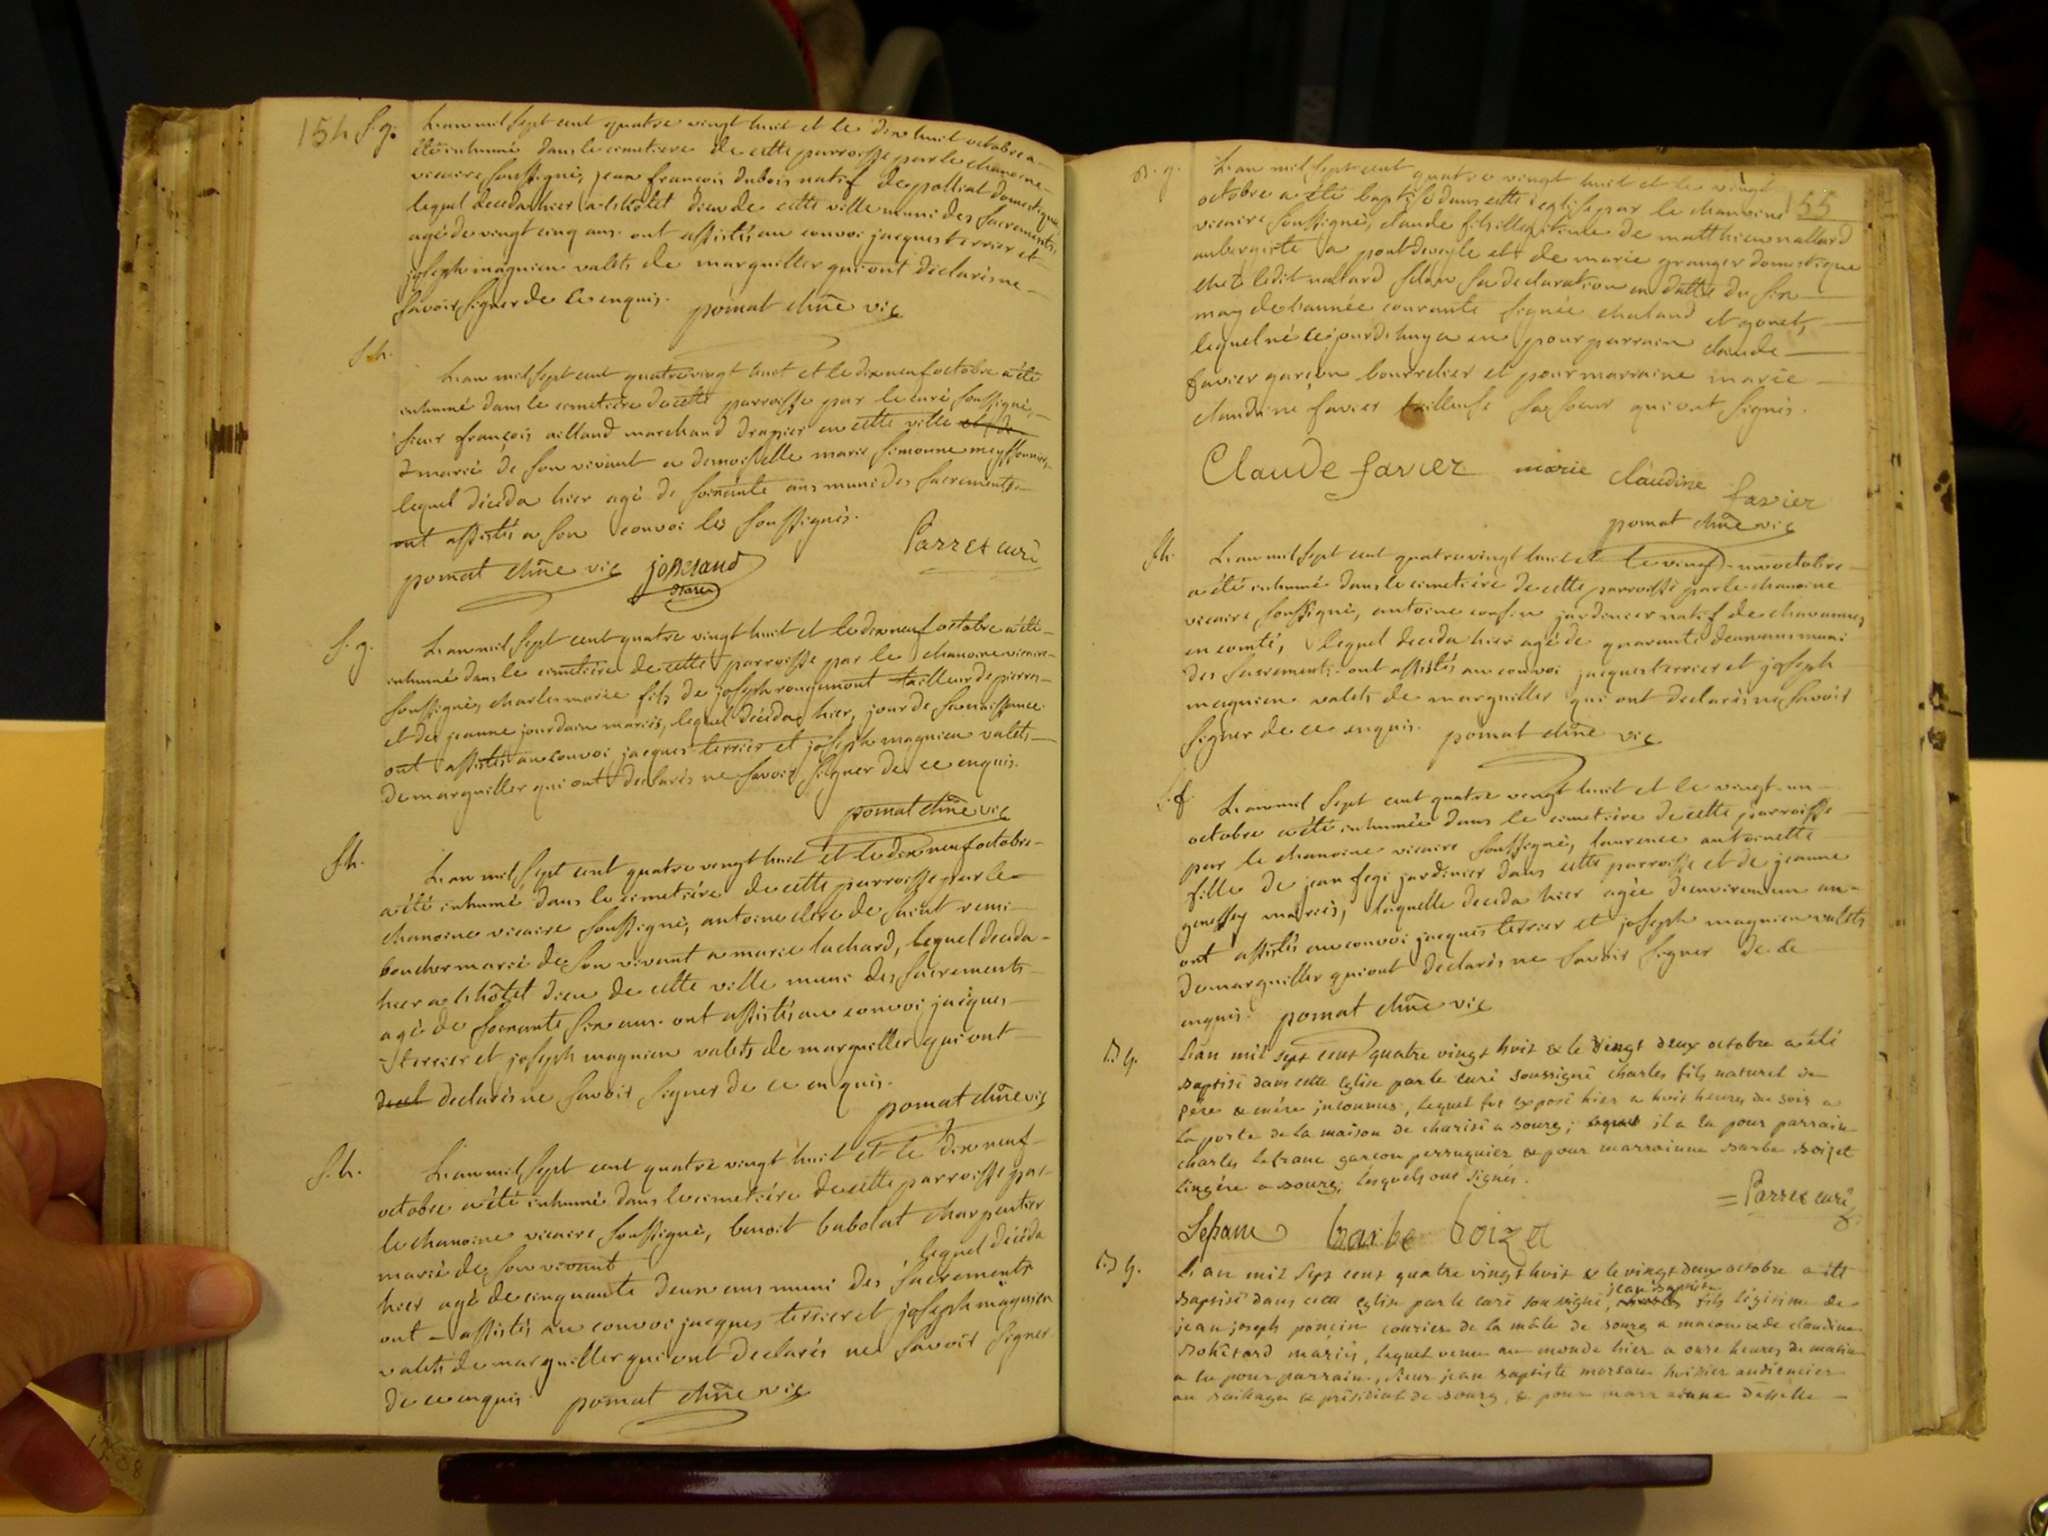 154
S. g.
L'an mil sept cent quatre vingt huit et le dix huit octobre a
été inhumé dans le cimetiere de cette parroisse par le chanoine
vicaire soussigné, jean françois dubois natif de polliat domestique
lequel deceda hier a l'hôtel dieu de cette ville muni des sacrements,
agé de vingt cinq ans. ont assistés au convoi jacques terrier et
joseph magnien valets de marguiller qui ont déclarés ne
savoir signer de ce enquis. pomat chne vic
S. h.
L'an mil sept cent quatre vingt huit et le dix neuf octobre a été
inhumé dans le cimetière de cette parroisse par le curé soussigné,
sieur françois aillaud marchand drapier en cette ville
marié de son vivant a demoiselle marie simonne
lequel décéda hier agé de soixante ans muni des sacrements
ont assistés a son convoi les soussignés.
Parrex curé
pomat chne vic
S. g.
L'an mil sept cent quatre vingt huit et le dix neuf octobre a été
inhumé dans le cimetière de cette parroisse par le chanoine vicaire
soussigné, charles marie fils de joseph rougemont tailleur de pierres
et de jeanne jourdain mariés, lequel décéda hier, jour de sa naissance
ont assistés au convoi jacques terrier et joseph magnien valets
de marguiller qui ont declarés ne savoir signer de ce enquis.
pomat chne vic
S h.
L'an mil sept cent quatre vingt huit et le dix neuf octobre
a été inhumé dans le cimetière de cette parroisse par le
chanoine vicaire soussigné, antoine clerc de saint remi
boucher marié de son vivant a marie lachard, lequel deceda
hier a l'hôtel dieu de cette ville muni des sacrements
agé de soixante six ans. ont assistés au convoi jacques
terrier et joseph magnien valets de marguiller qui ont
declarés ne savoir signer de ce enquis.
pomat chne vic
S. h.
L'an mil sept cent quatre vingt huit et le dix neuf
octobre a été inhumé dans le cimetière de cette parroisse par
le chanoine vicaire soussigné, benoit babolat charpentier
marié de son vivant lequel décéda
hier agé de cinquante deux ans muni des sacrements
ont assistés au convoi jacques terrier et joseph magnien
valets de marguiller qui ont declarés ne savoir signer
de ce enquis pomat chne vic
155
B. g.
L'an mil sept cent quatre vingt huit et le vingt
octobre a été baptisé dans cette eglise par le chanoine
vicaire soussigné, claude fils illegitime de matthieu nallard
aubergiste a pontdevesle et de marie granger domestique
chez ledit nallard selon sa declaration en datte du six
may de l'année courante signée chaland et gonet,
lequel né ce jourd'huy a eu pour parrain claude
favier garçon bourrelier et pour marraine marie
claudine favier tailleuse sa soeur qui ont signés.
Claude favier marie claudine favier
pomat chne vic
S h.
L'an mil sept cent quatre vingt huit et le vingt-un octobre
a été inhumé dans le cimetière de cette parroisse par le chanoine
vicaire soussigné, antoine cousin jardinier natif de chavannes
en comté, lequel deceda hier agé de quarante deux ans muni
des sacrements. ont assistés au convoi jacques terrier et joseph
magnien valets de marguiller qui ont declarés ne savoir
signer de ce enquis. pomat chne vic
S. f.
L'an mil sept cent quatre vingt huit et le vingt-un
octobre a été inhumée dans le cimetière de cette parroisse
par le chanoine vicaire soussigné, laurence antoinette
fille de jean fegi jardinier dans cette parroisse et de jeanne
mariés, laquelle deceda hier agée d'environ un an
ont assistés au convoi jacques terrier et joseph magnien valets
de marguiller qui ont declarés ne savoir signer de ce
enquis. pomat chne vic
B. G.
L'an mil sept cent quatre vingt huit & le vingt deux octobre a été
baptisé dans cette eglise par le curé soussigné charles fils naturel de
père & mère inconnus, lequel fut exposé hier a huit heures du soir a
la porte de la maison de charité a bourg; il a eu pour parrain
charles lefranc garcon perruquier & pour marrainne barbe boizet
lingère a bourg, lesquels ont signés.
= Parrex curé
Lefranc barbe boizet
B G.
L'an mil sept cent quatre vingt huit & le vingt deux octobre a été
baptisé dans cette eglise par le curé soussigné, jean baptiste fils légitime de
jean joseph poncin courier de la mâle de bourg a macon & de claudine
mariés, lequel venu au monde hier a onze heures du matin
a eu pour parrain, sieur jean baptiste moreau huissier audiencier
au bailliage & présidial de bourg, & pour marrainne delle